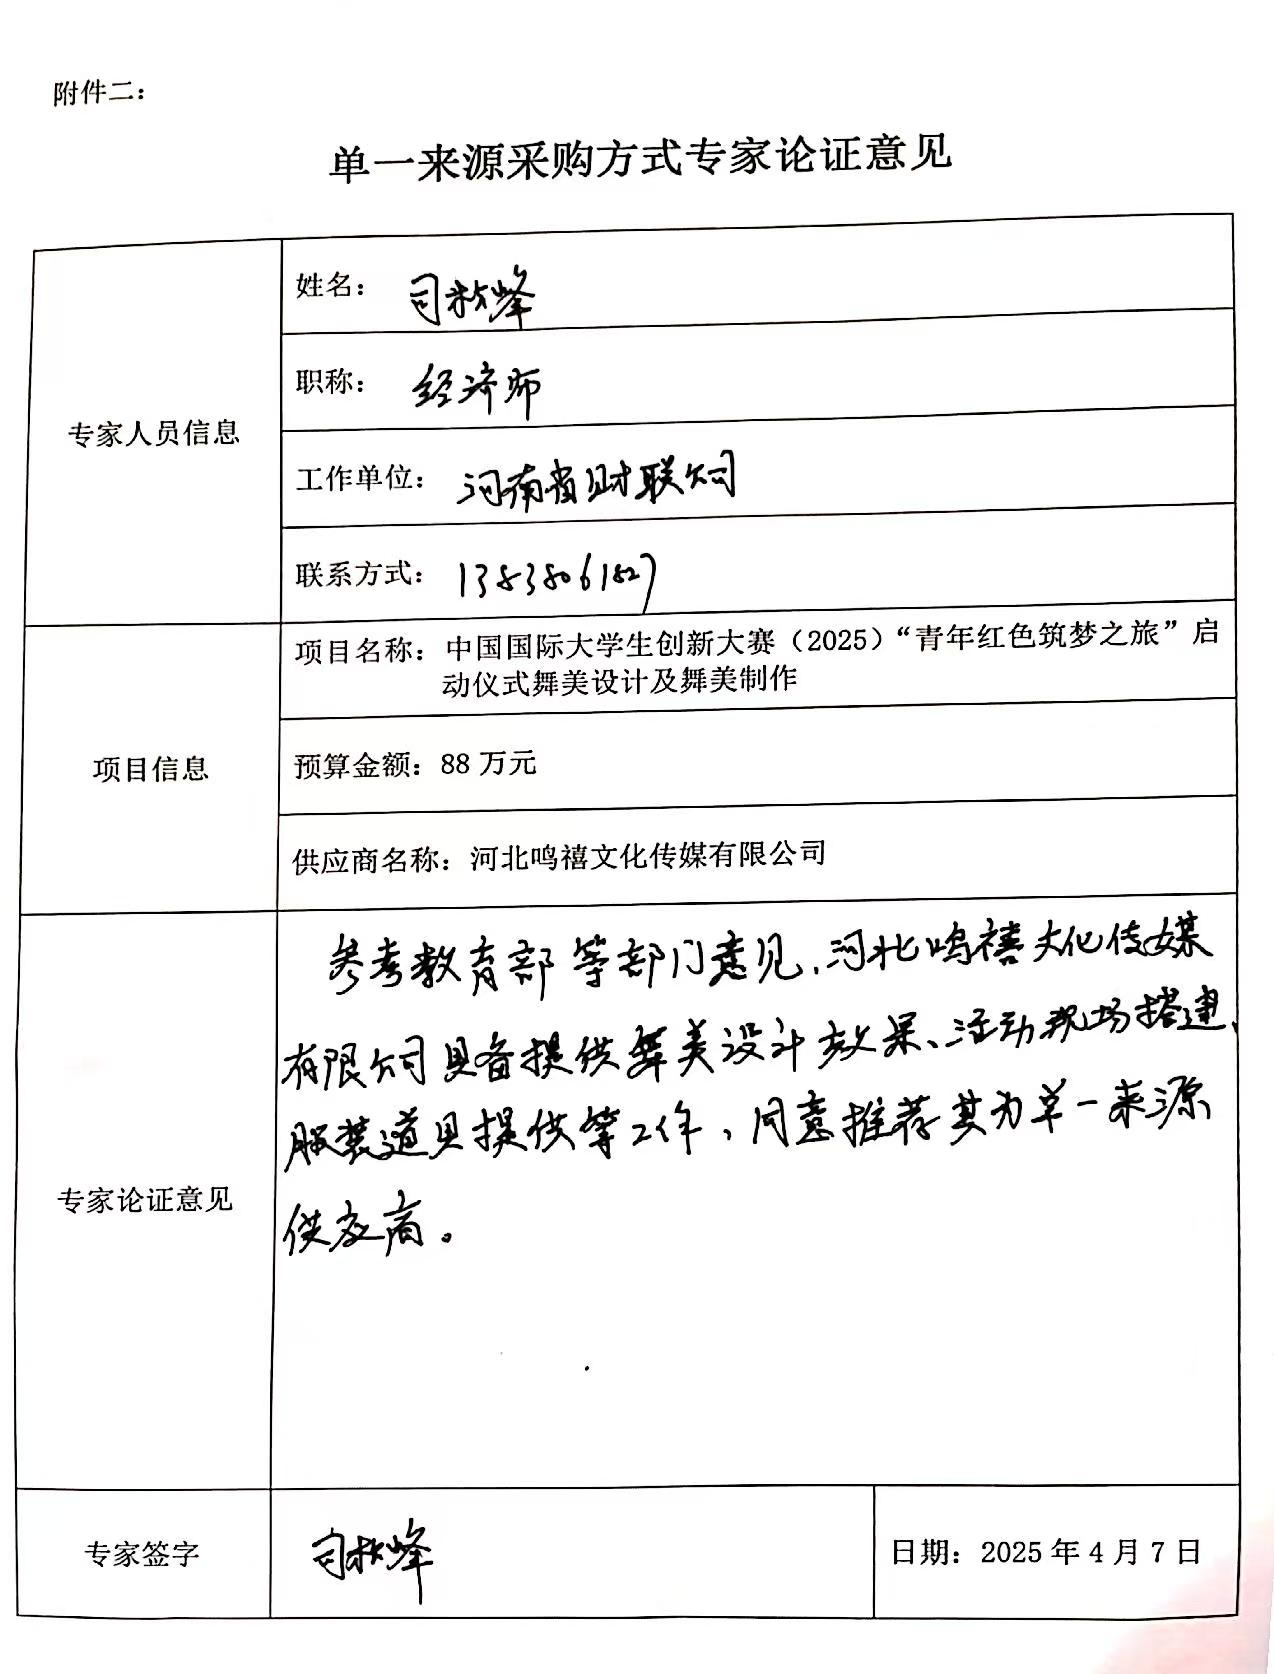 附件二：
单一来源采购方式专家论证意见
专家人员信息
姓名： 司秋峰
职称： 经济师
工作单位： 河南省财联公司
联系方式： 13838061827
项目信息
项目名称：中国国际大学生创新大赛（2025）“青年红色筑梦之旅”启
动仪式舞美设计及舞美制作
预算金额：88 万元
供应商名称：河北鸣禧文化传媒有限公司
专家论证意见
参考教育部等部门意见，河北鸣禧文化传媒
有限公司具备提供舞美设计效果、活动现场搭建、
服装道具提供等工作，同意推荐其为单一来源
供应商。
专家签字
司秋峰
日期：2025 年 4 月 7 日